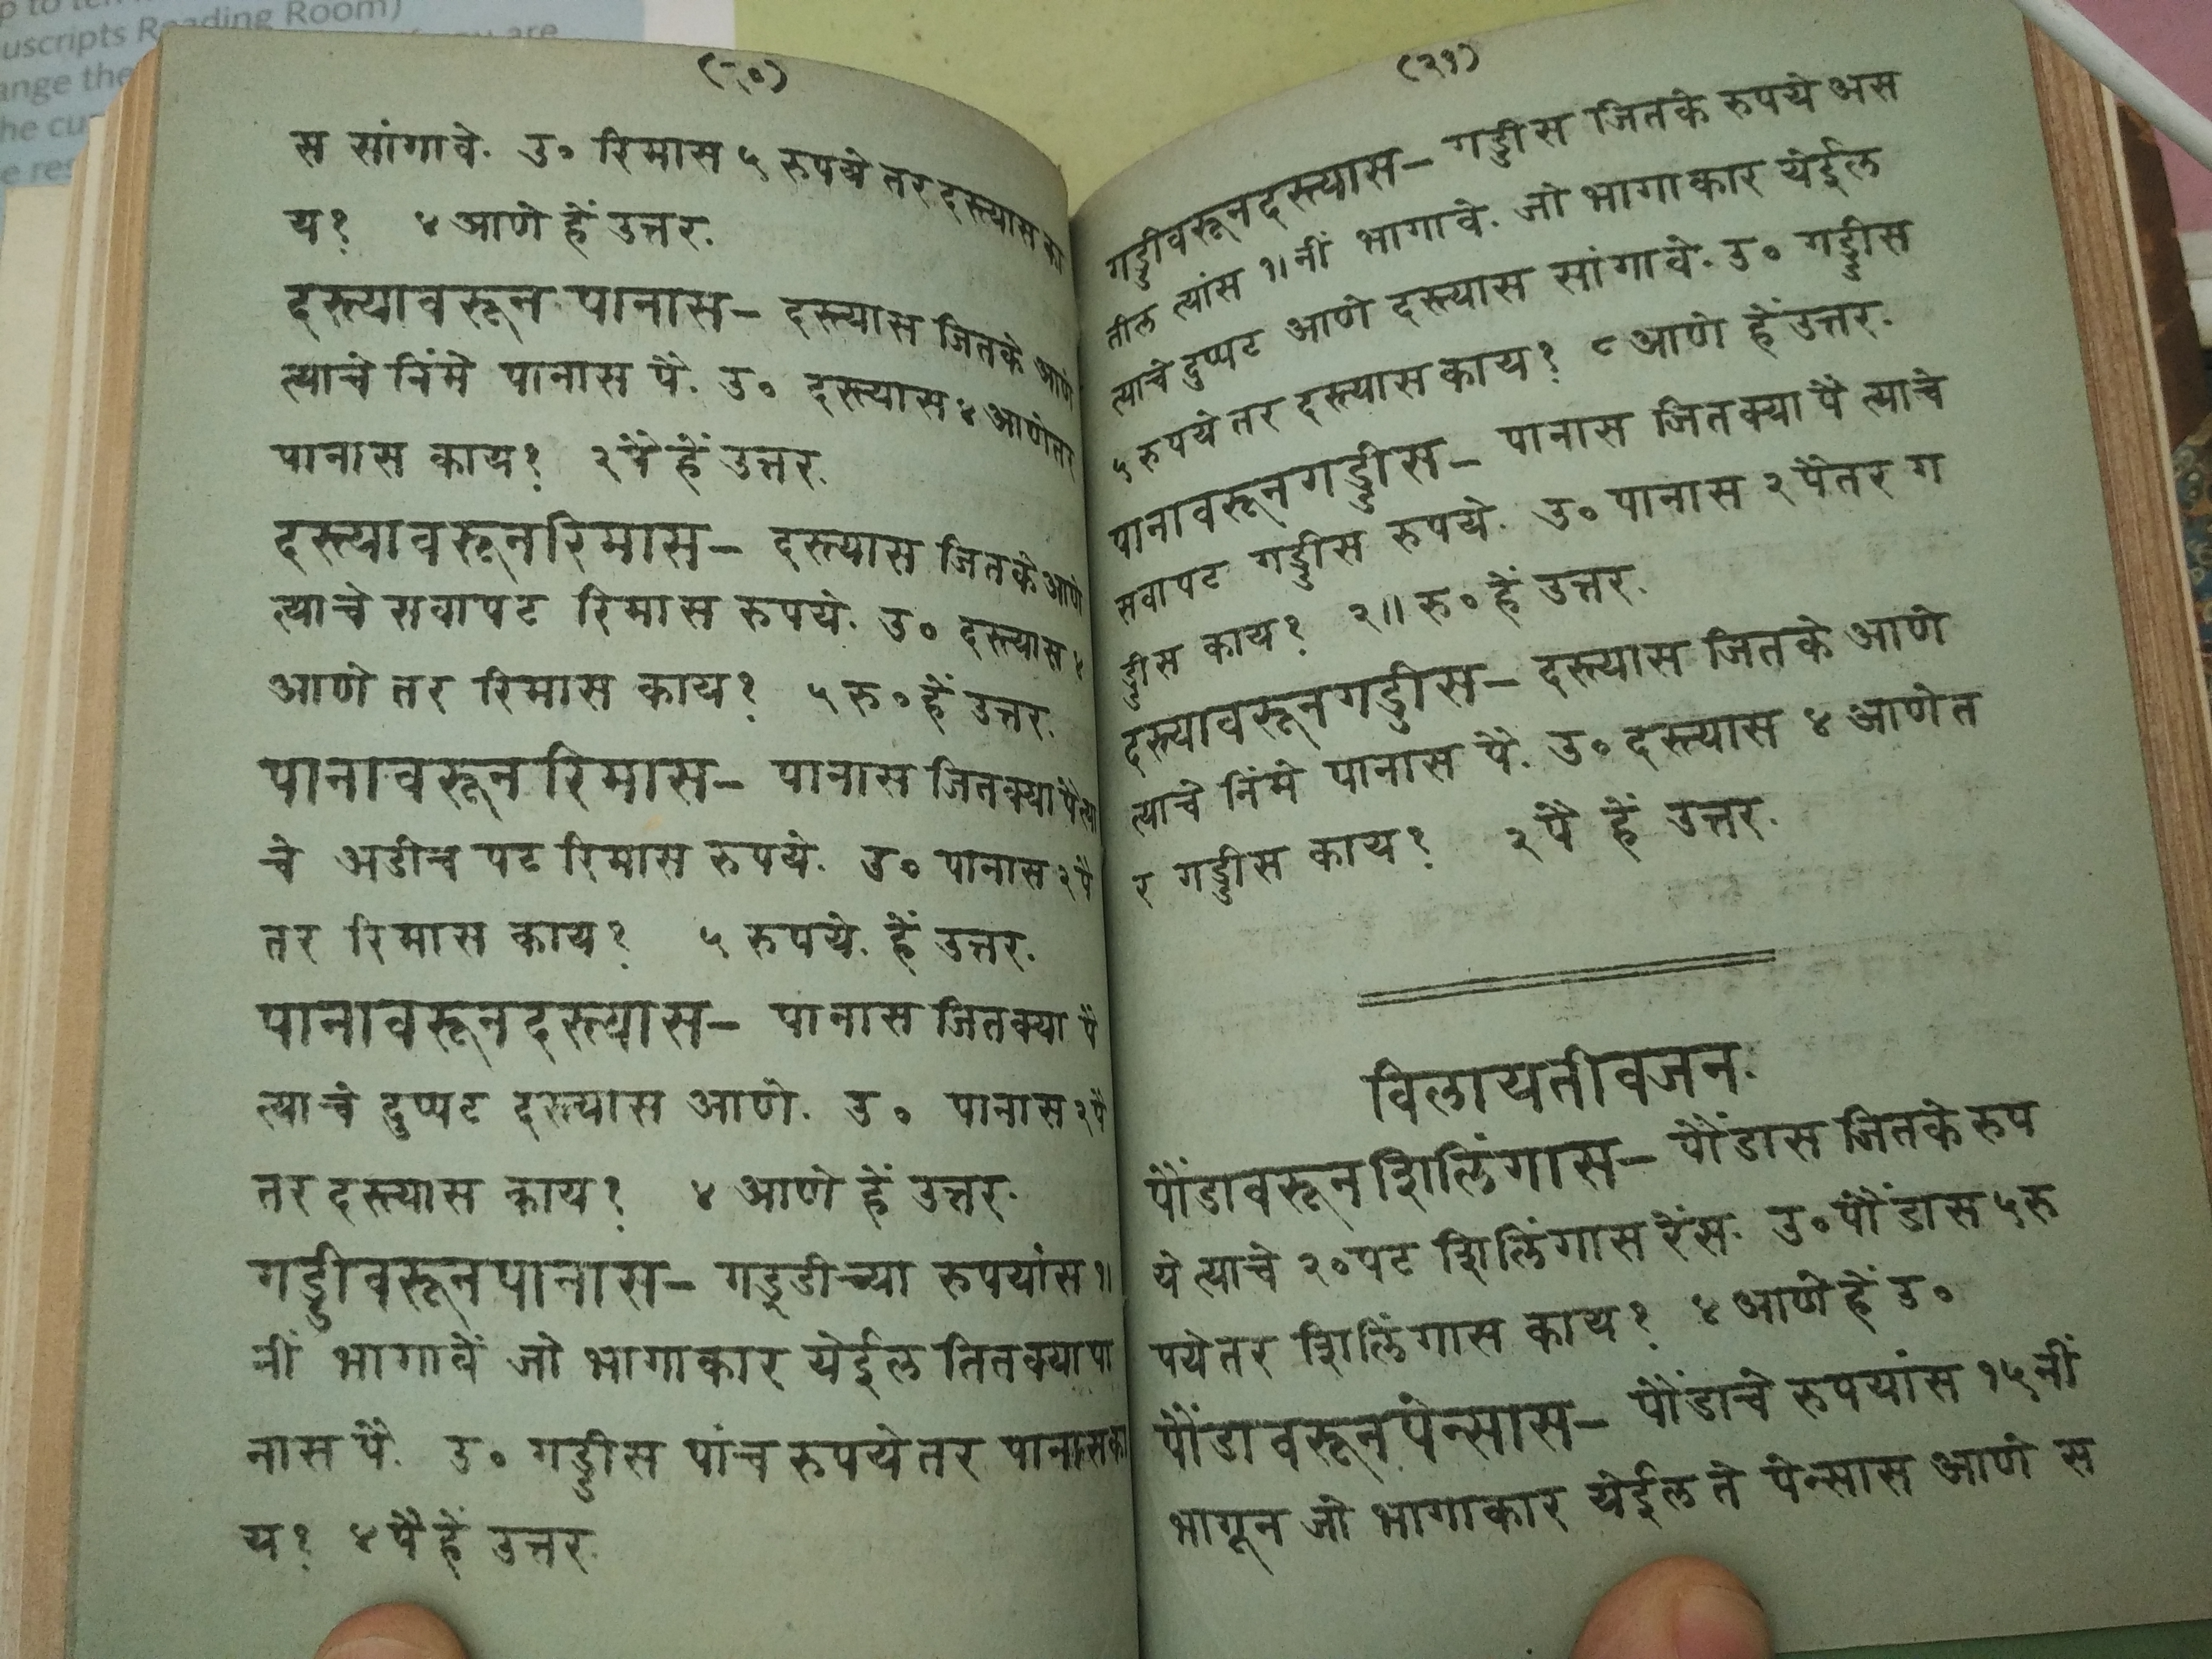 uscripts Reading Room)
ange the
he cu
e res
(२०)
स सांगावे. उ० रिमास ५ रुपये तर दस्त्यास का
य? ४ आणे हें उत्तर.
दस्त्यावरून पानास— दस्त्यास जितके आणे
त्याचे निंमे पानास पै. उ० दस्त्यास ४ आणेतर
पानास काय? २ पै हें उत्तर.
दस्त्यावरूनरिमास— दस्त्यास जितके आणे
त्याचे सवापट रिमास रुपये. उ० दस्त्यास ४
आणे तर रिमास काय? ५ रु० हें उत्तर.
पानावरून रिमास— पानास जितक्या पै त्या
चे अडीच पट रिमास रुपये. उ० पानास २ पै
तर रिमास काय? ५ रुपये. हें उत्तर.
पानावरूनदस्त्यास— पानास जितक्या पै
त्याचे दुप्पट दस्त्यास आणे. उ० पानास २ पै
तर दस्त्यास काय? ४ आणे हें उत्तर.
गड्डीवरूनपानास— गड्डीच्या रुपयांस १।
नीं भागावें जो भागाकार येईल तितक्या पा
नास पै. उ० गड्डीस पांच रुपये तर पानासका
य? ४ पै हें उत्तर.
(२१)
गड्डीवरूनदस्त्यास— गड्डीस जितके रुपये अस
तील त्यांस १। नीं भागावे. जो भागाकार येईल
त्याचे दुप्पट आणे दस्त्यास सांगावे. उ० गड्डीस
५ रुपये तर दस्त्यास काय? ८ आणे हें उत्तर.
पानावरूनगड्डीस— पानास जितक्या पै त्याचे
सवापट गड्डीस रुपये. उ० पानास २ पैतर ग
ड्डीस काय? २॥ रु० हें उत्तर.
दस्त्यावरूनगड्डीस— दस्त्यास जितके आणे
त्याचे निंमे पानास पै. उ० दस्त्यास ४ आणे त
र गड्डीस काय? २ पै हें उत्तर.
विलायतीवजन.
पौंडावरूनशिलिंगास— पौंडास जितके रुप
ये त्याचे २० पट शिलिंगास रेंस. उ० पौंडास ५ रु
पयेतर शिलिंगास काय? ४ आणे हें उ०
पौंडावरूनपेन्सास— पौंडाचे रुपयांस १५ नीं
भागून जो भागाकार येईल ते पेन्सास आणे स